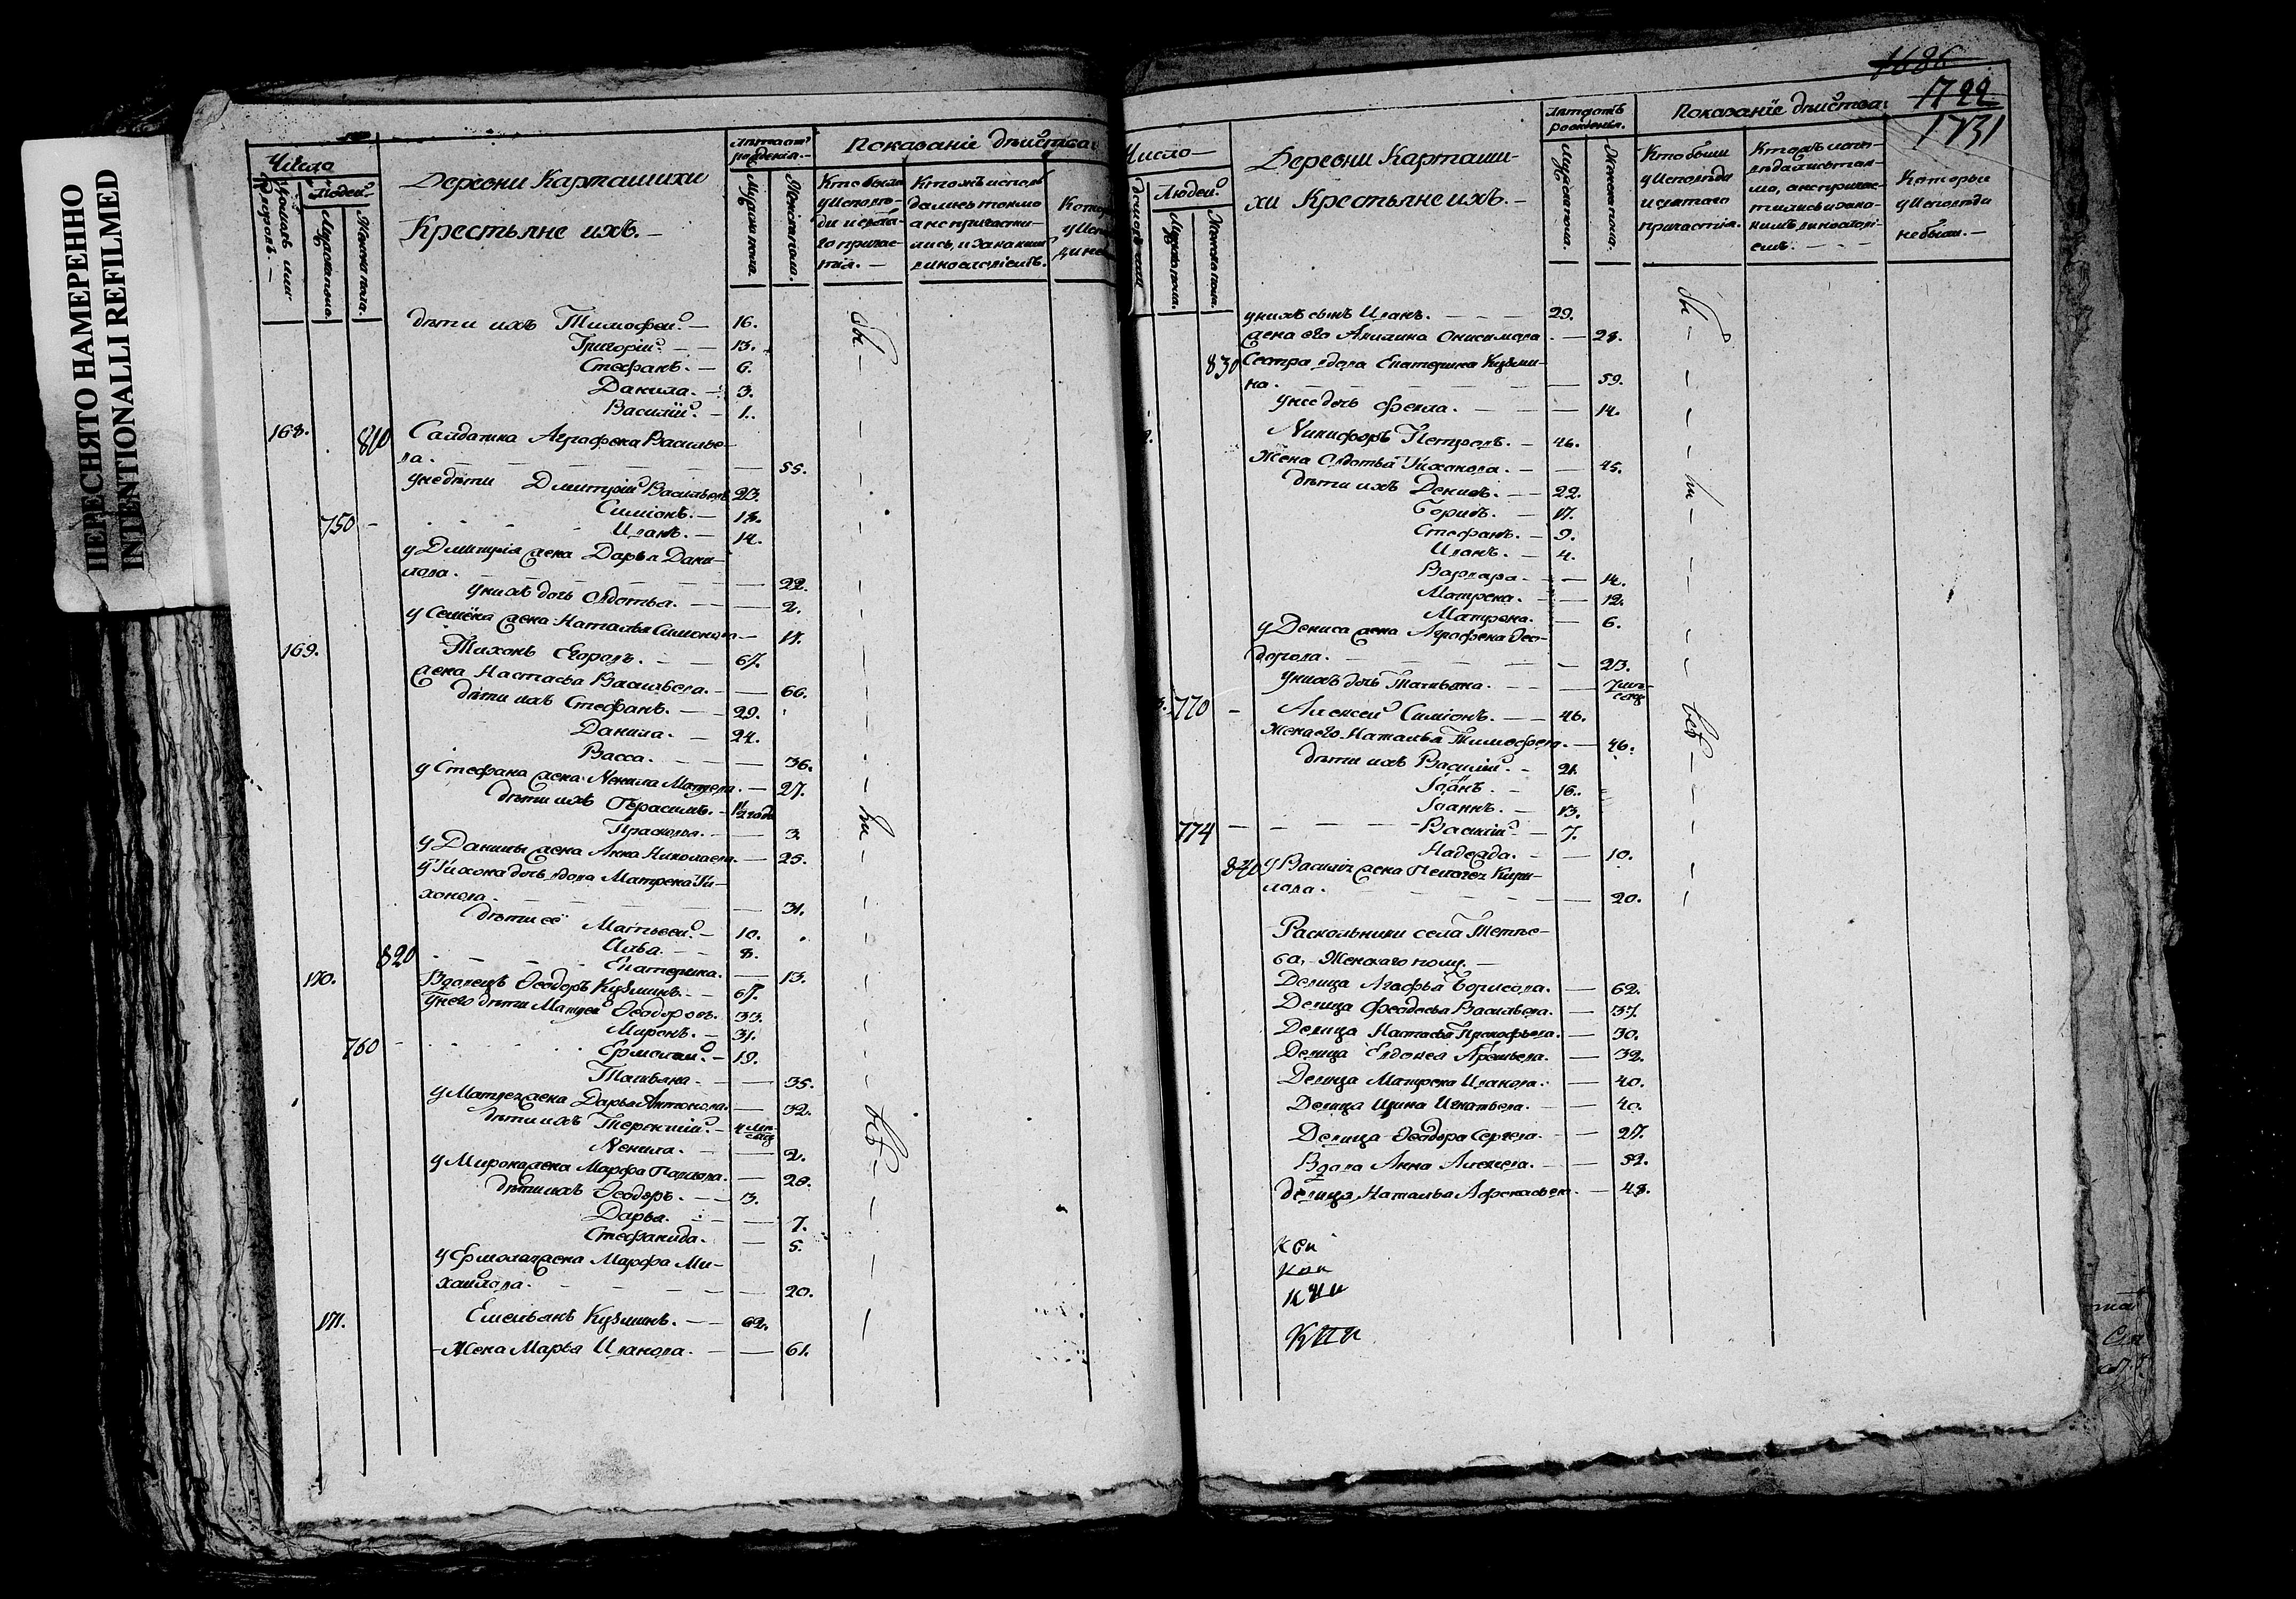 ПЕРЕСНЯТО НАМЕРЕННО
INTENTIONALLI REFILMED
Число
Людей
Деревни Карташихи
Крестьяне ихъ. —
Лѣта отъ рожденія. —
Показаніе дѣйства:
Мужска пола.
Женска пола.
Кто были
у исповѣ-
ди и свята-
го причас-
тія. —
Кто жъ исповѣ
дались токмо
а не причасти-
лись, и за какимъ
винословіемъ.
дѣти ихъ Тимофей. — 16.
Григорій. — 13.
Стефанъ. — 6.
Данила. — 3.
Василій. — 1.
168. 810 Салдатка Аграфена Василье-
ва. — 55.
у ней дѣти Дмитрій Васильевъ 23.
Симіонъ. — 18.
750 — Иванъ. — 14.
у Дмитрія жена Дарья Дани-
лова. — 22.
у нихъ дочь Авдотья. — 2.
у Семёна жена Наталья Симонова —
169. Тихонъ Егоровъ. — 67.
жена Настасья Васильева. — 66.
дѣти ихъ Стефанъ. — 29.
Данила. — 24.
Васса. — 36.
у Стефана жена Ненила Матвеева. — 27.
дѣти ихъ Герасимъ. — 1/2 года
Прасковья. — 3.
у Данилы жена Анна Николаева. — 25.
у Тихона дочь вдова Матрена Ти-
хонова. — 31.
дѣти её Матвеей. — 10.
Илья. — 8.
820 Екатерина. — 13.
170. Вдовецъ Ѳеодоръ Кузминъ. — 67.
у него дѣти Матвей Ѳеодоровъ. 33.
Миронъ. — 31.
760 — Ермолай. — 19.
Татьяна. — 35.
у Матвея жена Дарья Антонова. — 32.
дѣти ихъ Терентій. — 4 мѣ-
сяц
Ненила. — 2.
у Мирона жена Марфа Павлова. — 28.
дѣти ихъ Ѳеодоръ. — 3.
Дарья. — 7.
Стефанида. — 5.
у Ермолая жена Марфа Ми-
хайлова. — 20.
171. Емельянъ Кузминъ. — 62.
Жена Марья Иванова. — 61.
1686
1722
1731
Число —
Людей.
Деревни Карташи-
хи Крестьяне ихъ. —
Лѣта отъ
рожденья.
Показаніе дѣйства:
Мужска пола.
Женска пола.
Кто были
у исповѣди
и святаго
причастія.
Кто жъ испо-
вѣдались ток-
мо, а не причас-
тились и за ка-
кимъ винослові-
емъ. —
Которыи
у исповѣди
не были. —
у нихъ сынъ Иванъ. — 29.
жена его Акилина Онисимова. — 28.
830 Сестра вдова Екатерина Кузми-
на. — 59.
у нее дочь Фекла. — 14.
Никифоръ Петровъ. — 46.
Жена Авдотья Тихонова. — 45.
дѣти ихъ Денисъ. — 22.
Борисъ. — 17.
Стефанъ. — 9.
Иванъ. — 4.
Варвара. — 14.
Матрена. — 12.
Матрона. — 6.
у Дениса жена Аграфена Ѳео-
дорова. — 23.
у нихъ дочь Татьяна. — 7 мѣ-
сяц
770 — Алексей Симіонъ. — 46.
Жена его Наталья Тимофеева. — 46.
дѣти ихъ Василій. — 21.
Іоанъ. — 16.
Іоаннъ. — 13.
774 — Василій. — 7.
Надежда. — 10.
840 у Василія жена Пелагея Кири-
лова. — 20.
Раскольники села Тетѣе-
ва, Женскаго полу. —
Девица Агафья Борисова. — 62.
Девица Феодосья Васильева. — 37.
Девица Настасья Прокофьева. — 30.
Девица Евдокея Артемьева. — 32.
Девица Матрена Иванова. — 40.
Девица Ирина Игнатьева. — 40.
Девица Ѳеодора Сергева. — 27.
Вдова Анна Алексева. — 52.
девица Наталья Афонасьева. — 48.